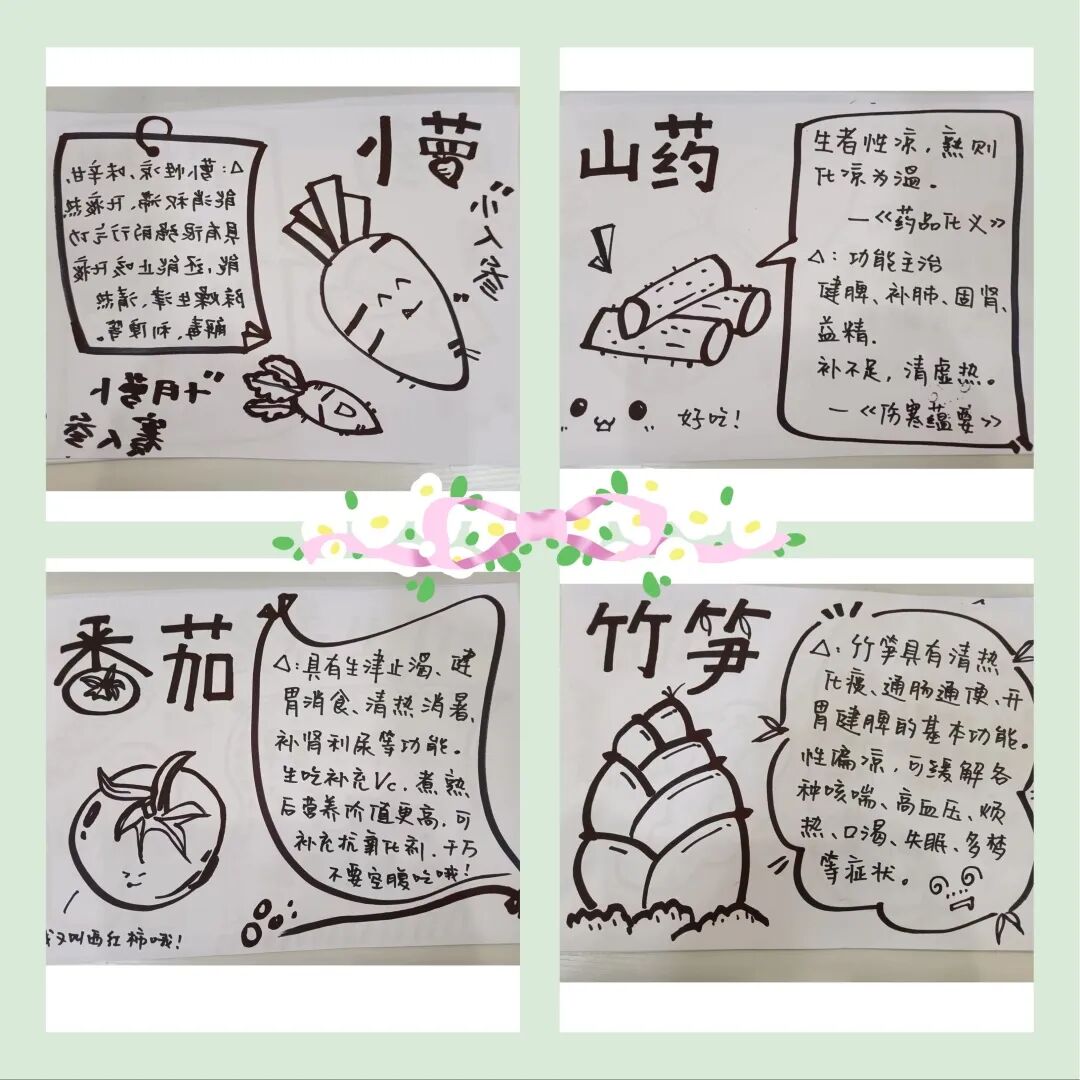 萝卜
"小人参"
△:萝卜性凉、味辛甘,
能消积滞、化痰热
具有很强的行气功
能,还能止咳化痰
除燥生津、清热
解毒、利便等。
"十月萝卜
赛人参
山药
生者性凉,熟则
化凉为温。
—《药品化义》
△:功能主治
健脾、补肺、固肾、
益精.
补不足,清虚热。
—《伤寒蕴要》
好吃!
番茄
△:具有生津止渴、健
胃消食、清热消暑、
补肾利尿等功能。
生吃补充Vc,煮熟
后营养价值更高,可
补充抗氧化剂,千万
不要空腹吃哦!
我又叫西红柿哦!
竹笋
△:竹笋具有清热
化痰、通肠通便、开
胃健脾的基本功能。
性偏凉,可缓解各
种咳喘、高血压、烦
热、口渴、失眠、多梦
等症状。